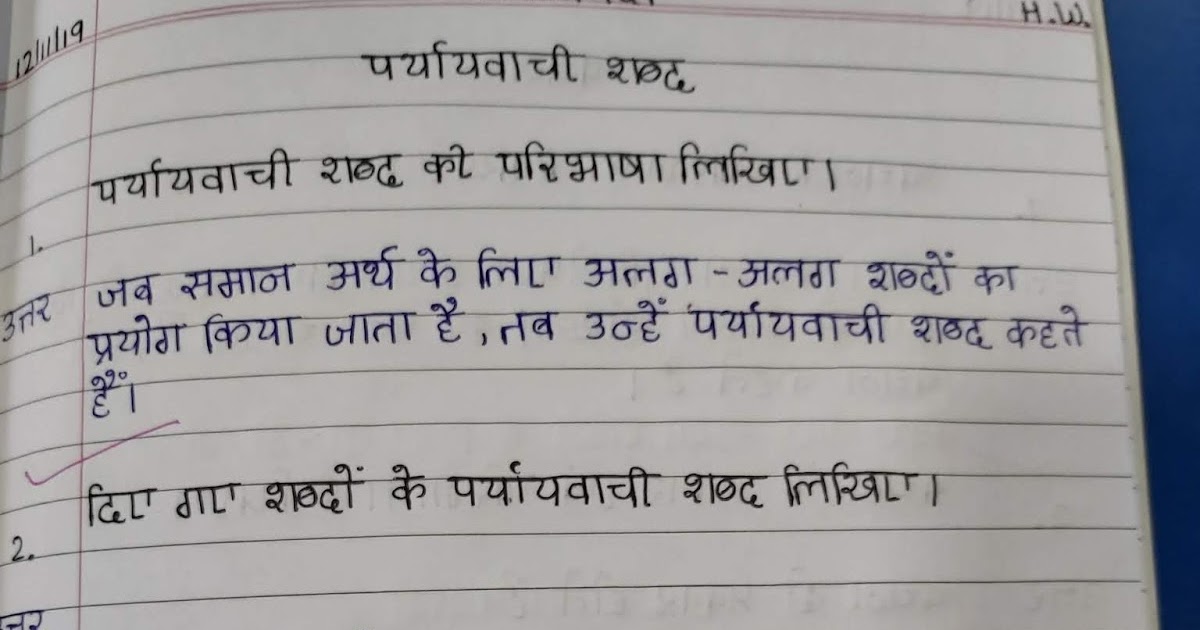 12/11/19
H.W.
पर्यायवाची शब्द
पर्यायवाची शब्द की परिभाषा लिखिए।
1.
उत्तर जब समान अर्थ के लिए अलग - अलग शब्दों का
प्रयोग किया जाता है, तब उन्हें पर्यायवाची शब्द कहते
हैं।
दिए गए शब्दों के पर्यायवाची शब्द लिखिए।
2.